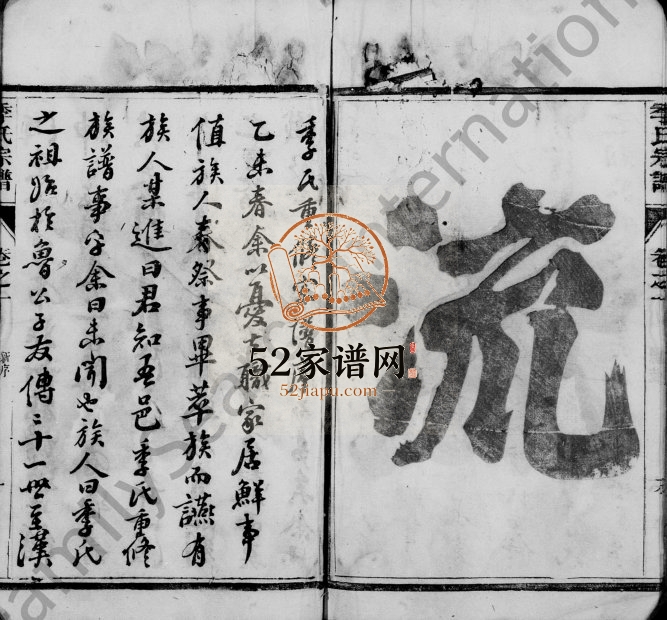 流
季氏宗譜
卷之一
季氏重修宗譜
乙未春余以憂去職家居鮮事
值族人春祭事畢萃族而讌有
族人某進曰君知吾邑季氏重修
族譜事乎余曰未聞也族人曰季氏
之祖始於魯公子友傳三十一世至漢
季氏宗譜
卷之一
新序
52家谱网
52jiapu.com
FamilySearch International